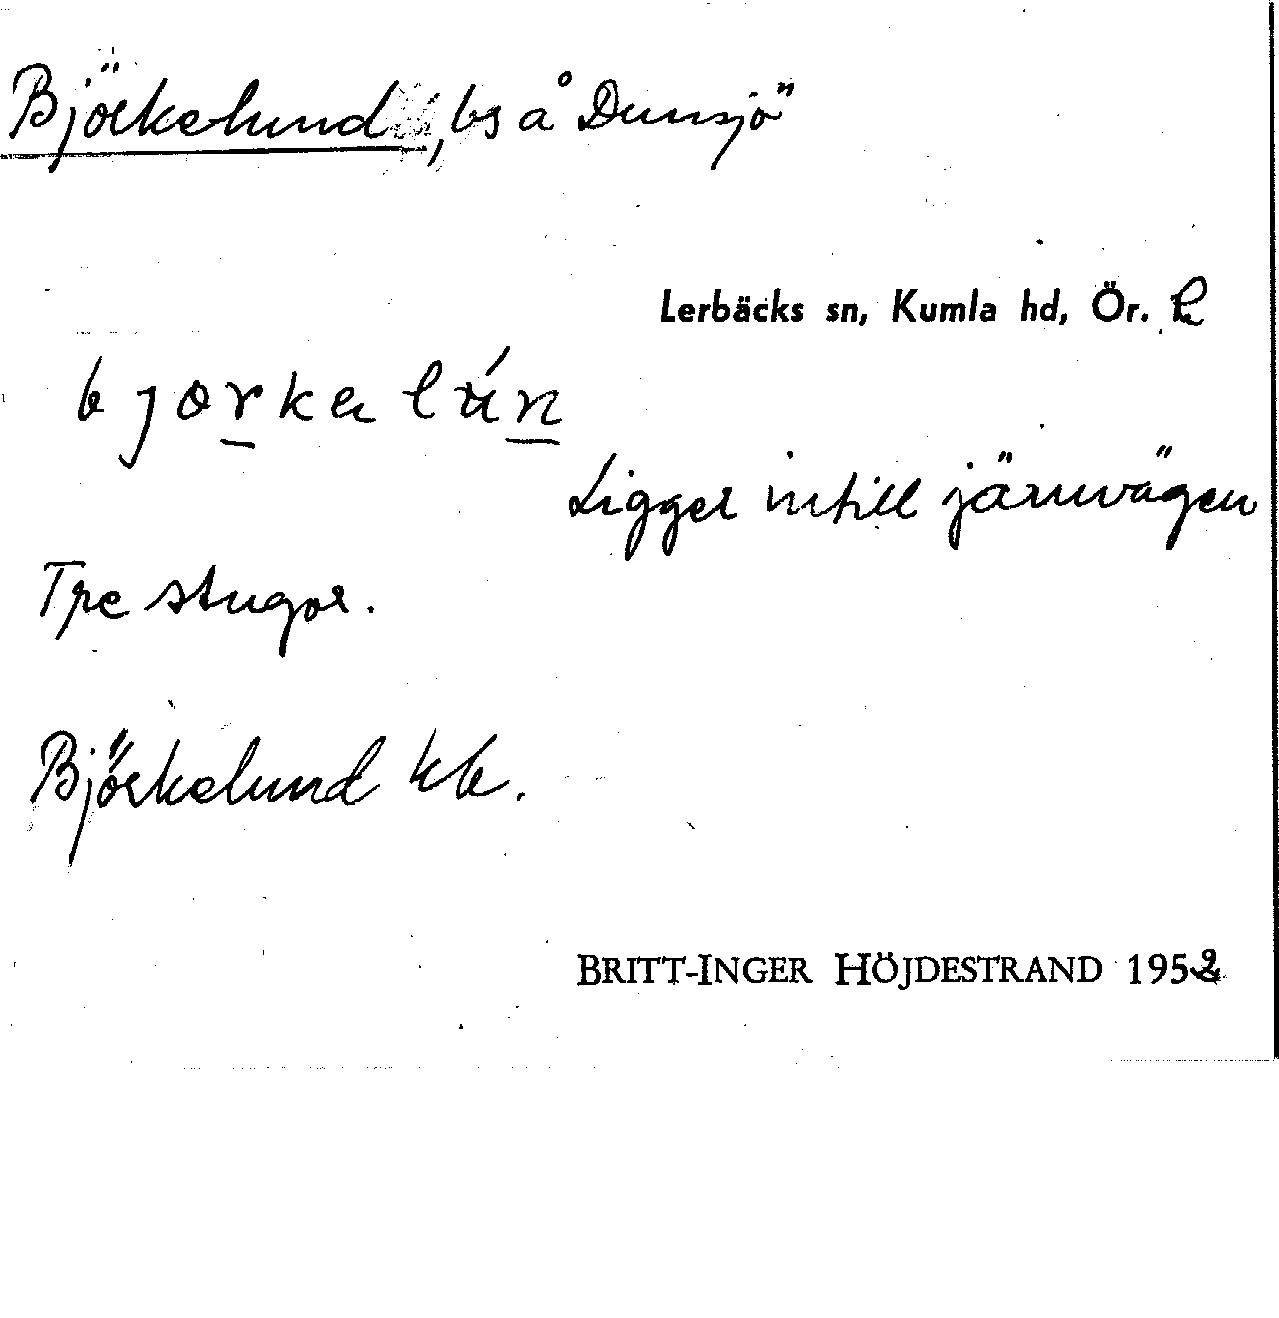 Björkelund, bs å Dunsjö
Lerbäcks sn, Kumla hd, Ör. l.
bjorkalún
Ligger intill järnvägen
Tre stugor.
Björkelund kb.
BRITT-INGER HÖJDESTRAND 1952